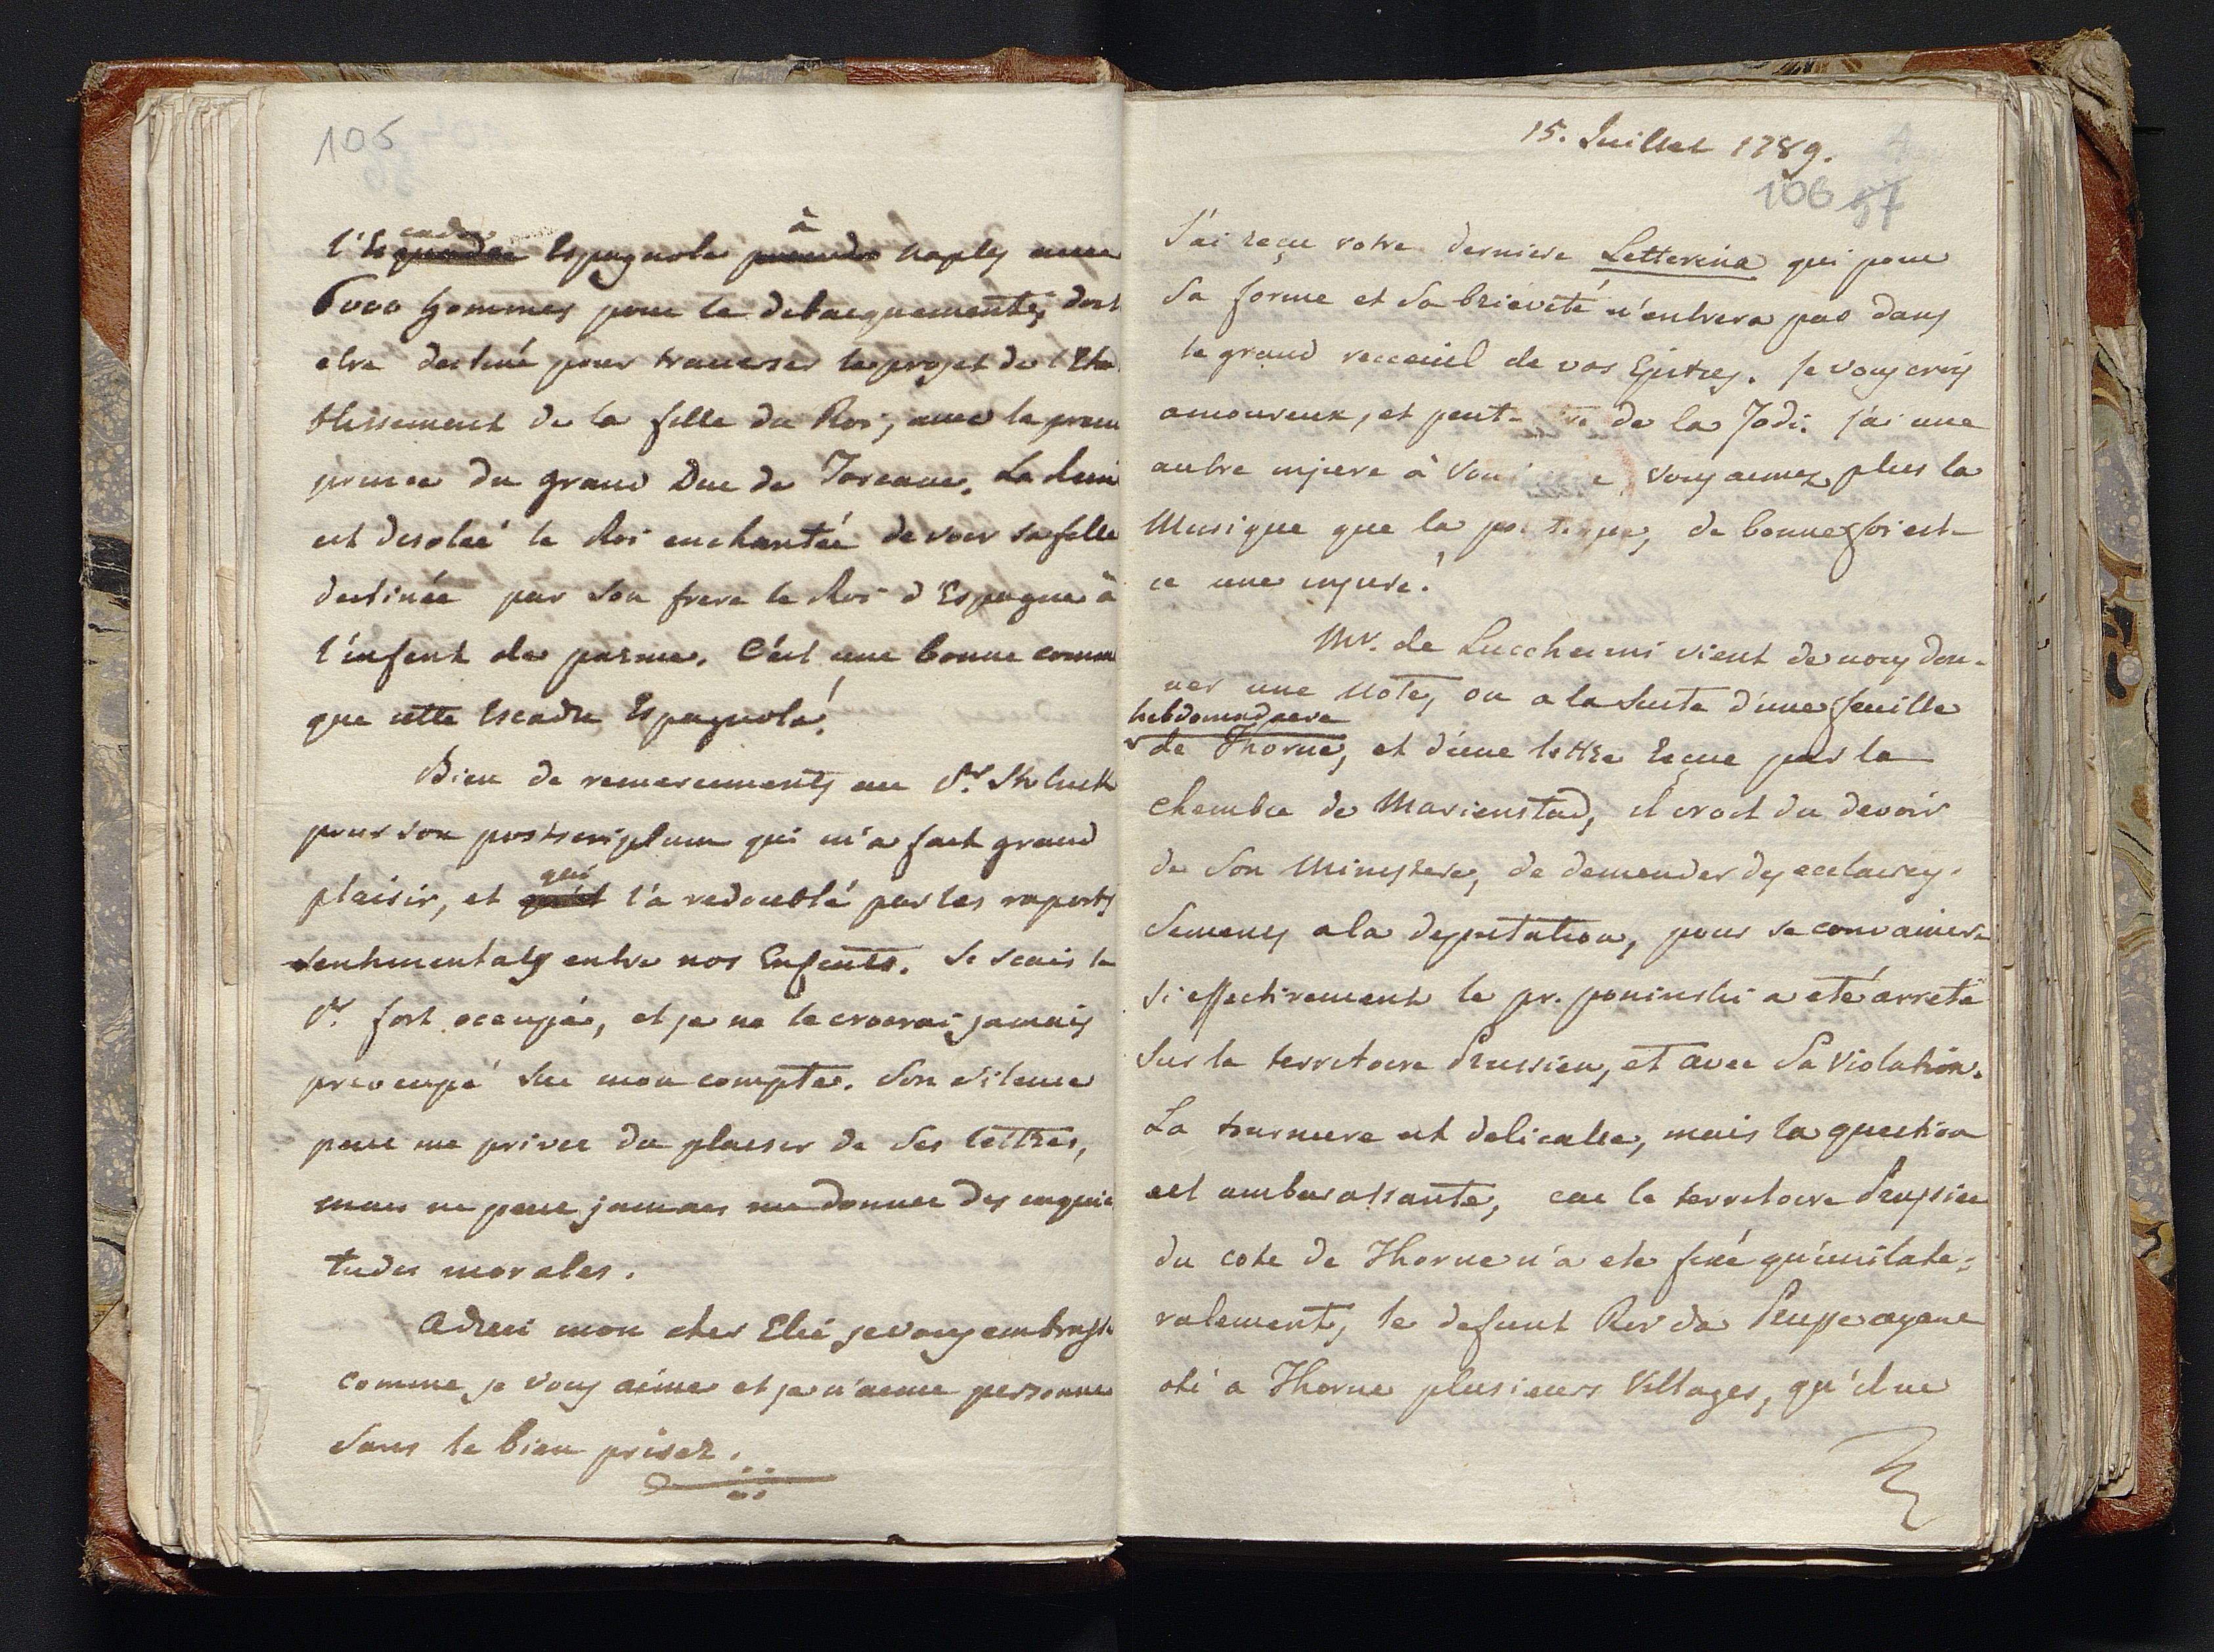 105
l'Escadre Espagnole à Naples avec
6000 hommes pour le debarquement, doit
etre destiné pour traverser le projet de l'Eta
blissement de la fille du Roi, avec le prem
prince du grand Duc de Toscane. La Reine
est desolée le Roi enchantée de voir sa fille
destinée par son frere le Roi d'Espagne à
l'infent de parme. C'est une bonne comm
que cette Escadre Espagnole!
Bien de remerciments au Pr.
pour son postscriptum qui m'a fait grand
plaisir, et qui l'a redoublé par les raports
sentimentals entre nos Enfents. Je scais le
Pr fort occupé, et je ne le croirai jamais
preocupé sur mon compte. Son silence
peut me priver du plaisir de ses lettres,
mais ne peut jamais me donner des inquie
tudes morales.
Adieu mon cher Elié je vous embrasse
comme je vous aime et je n'aime personne
sans le bien priser.
15. Juillet 1789.
106 57
J'ai reçu votre derniere Letterina qui pour
sa forme et sa brieveté n'entrera pas dans
le grand receuil de vos Epitres. Je vous crois
amoureux, et peut- re de la Todi. J'ai une
autre injure à vous e, vous aimez plus la
Musique que la po tique, de bonne foi est-
ce une injure?
Mr. de Lucchesini vient de nous don-
ner une Note, ou a la suite d'une feuille
hebdomadaire
de Thorne, et d'une lettre reçue par la
chembre de Marienstad, il croit du devoir
de son Ministere, de demender des eclaircis-
semens a la deputation, pour se convaincre
si effectivement le pr. poninski a eté arreté
sur le territoire Prussien, et avec sa Violation.
La tournure est delicatte, mais la question
est ambarassante, car le territoire Prussien
du cote de Thorne n'a ete fixé qu'unilate-
ralement, le defunt Roi de Prusse ayant
oté a Thorne plusieurs Villages, qu'il ne